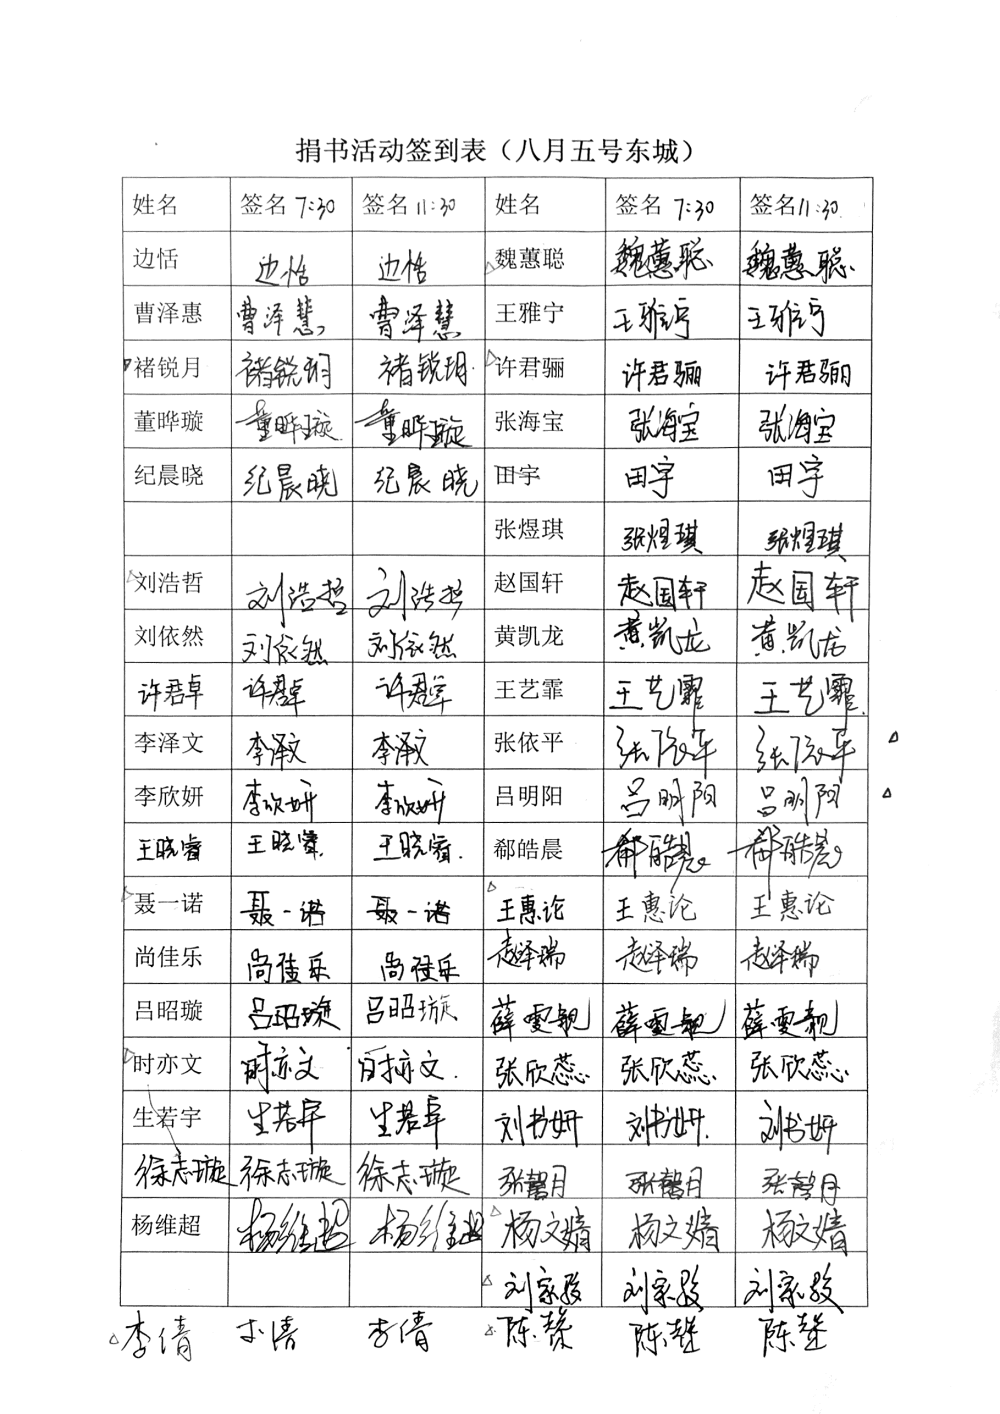 捐书活动签到表（八月五号东城）
姓名 签名 7:30 签名 11:30 姓名 签名 7:30 签名 11:30
边恬 边恬 边恬 魏蕙聪 魏蕙聪 魏蕙聪
曹泽惠 曹泽慧 曹泽慧 王雅宁 王雅宁 王雅宁
褚锐月 褚锐玥 褚锐玥 许君骊 许君骊 许君骊
董晔璇 董晔璇 董晔璇 张海宝 张海宝 张海宝
纪晨晓 纪晨晓 纪晨晓 田宇 田宇 田宇
张煜琪 张煜琪 张煜琪
刘浩哲 刘浩哲 刘浩哲 赵国轩 赵国轩 赵国轩
刘依然 刘依然 刘依然 黄凯龙 黄凯龙 黄凯龙
许君卓 许君卓 许君卓 王艺霏 王艺霏 王艺霏
李泽文 李泽文 李泽文 张依平 张依平 张依平
李欣妍 李欣妍 李欣妍 吕明阳 吕明阳 吕明阳
王晓睿 王晓睿 王晓睿 郗皓晨 郗皓晨 郗皓晨
聂一诺 聂一诺 聂一诺 王惠论 王惠论 王惠论
尚佳乐 尚佳乐 尚佳乐 赵泽瑞 赵泽瑞 赵泽瑞
吕昭璇 吕昭璇 吕昭璇 薛雯靓 薛雯靓 薛雯靓
时亦文 时亦文 时亦文 张欣蕊 张欣蕊 张欣蕊
生若宇 生若宇 生若宇 刘书妍 刘书妍 刘书妍
徐志璇 徐志璇 徐志璇 张馨月 张馨月 张馨月
杨维超 杨维超 杨维超 杨文婧 杨文婧 杨文婧
刘家毅 刘家毅 刘家毅
李倩 李倩 李倩 陈 陈 陈